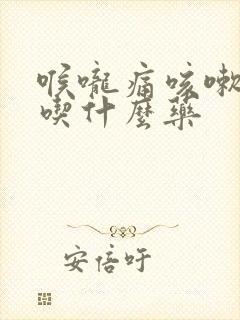 喉嚨痛咳嗽
喫什麼藥
安倍吁